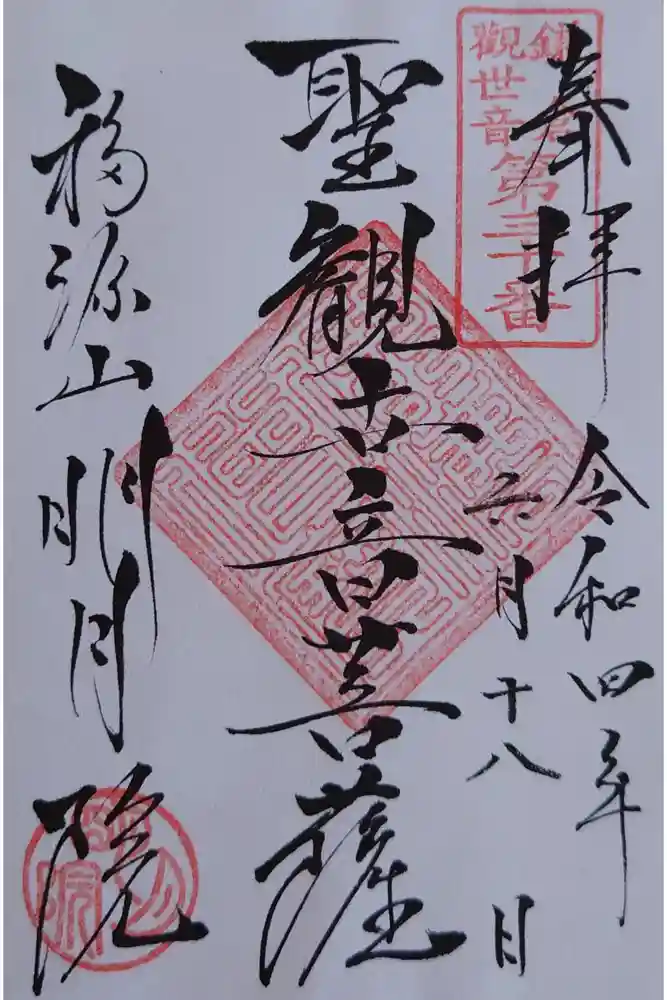 奉拝
令和四年
六月十八日
鎌倉
觀世音
第三十番
聖観世音菩薩
福源山明月院